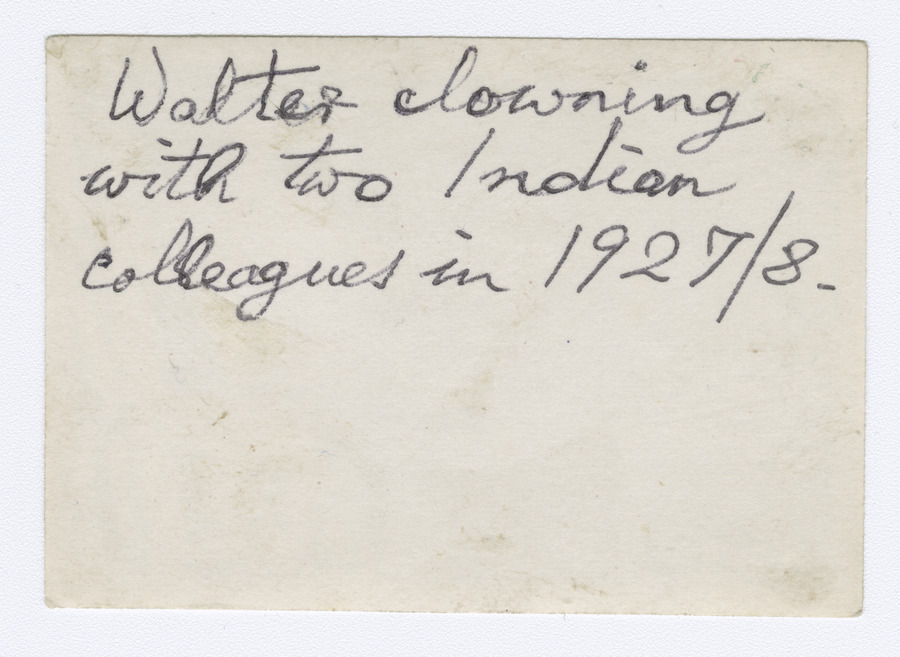 Walter clowning
with two Indian
colleagues in 1927/8.